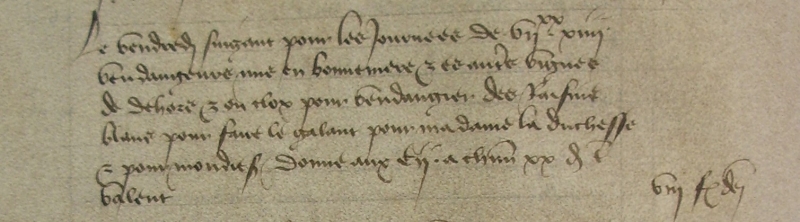 Le vendredi suigant pour les journees de vii xx xiiii
vendangeurs mis en bonnemere & es autres vignes
de dehors & ou clox pour vendangier des raisins
blans pour faire le galant pour madame la duchesse
& pour mondit sr donne aux
valent viii f